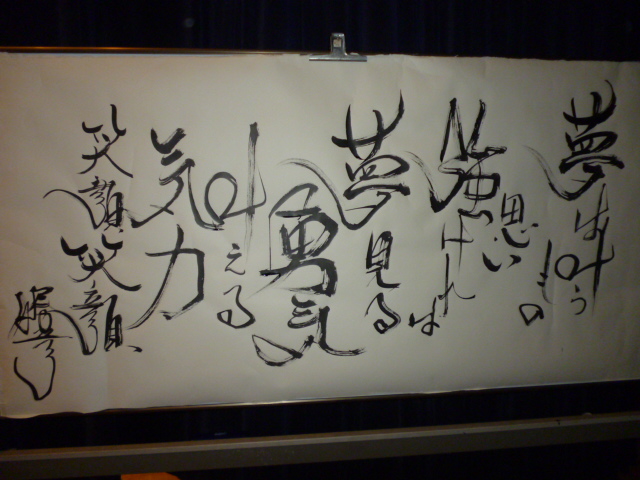 夢は叶う
もの
思い
強ければ
夢見る
勇気
叶える
気力
笑顔、笑顔、